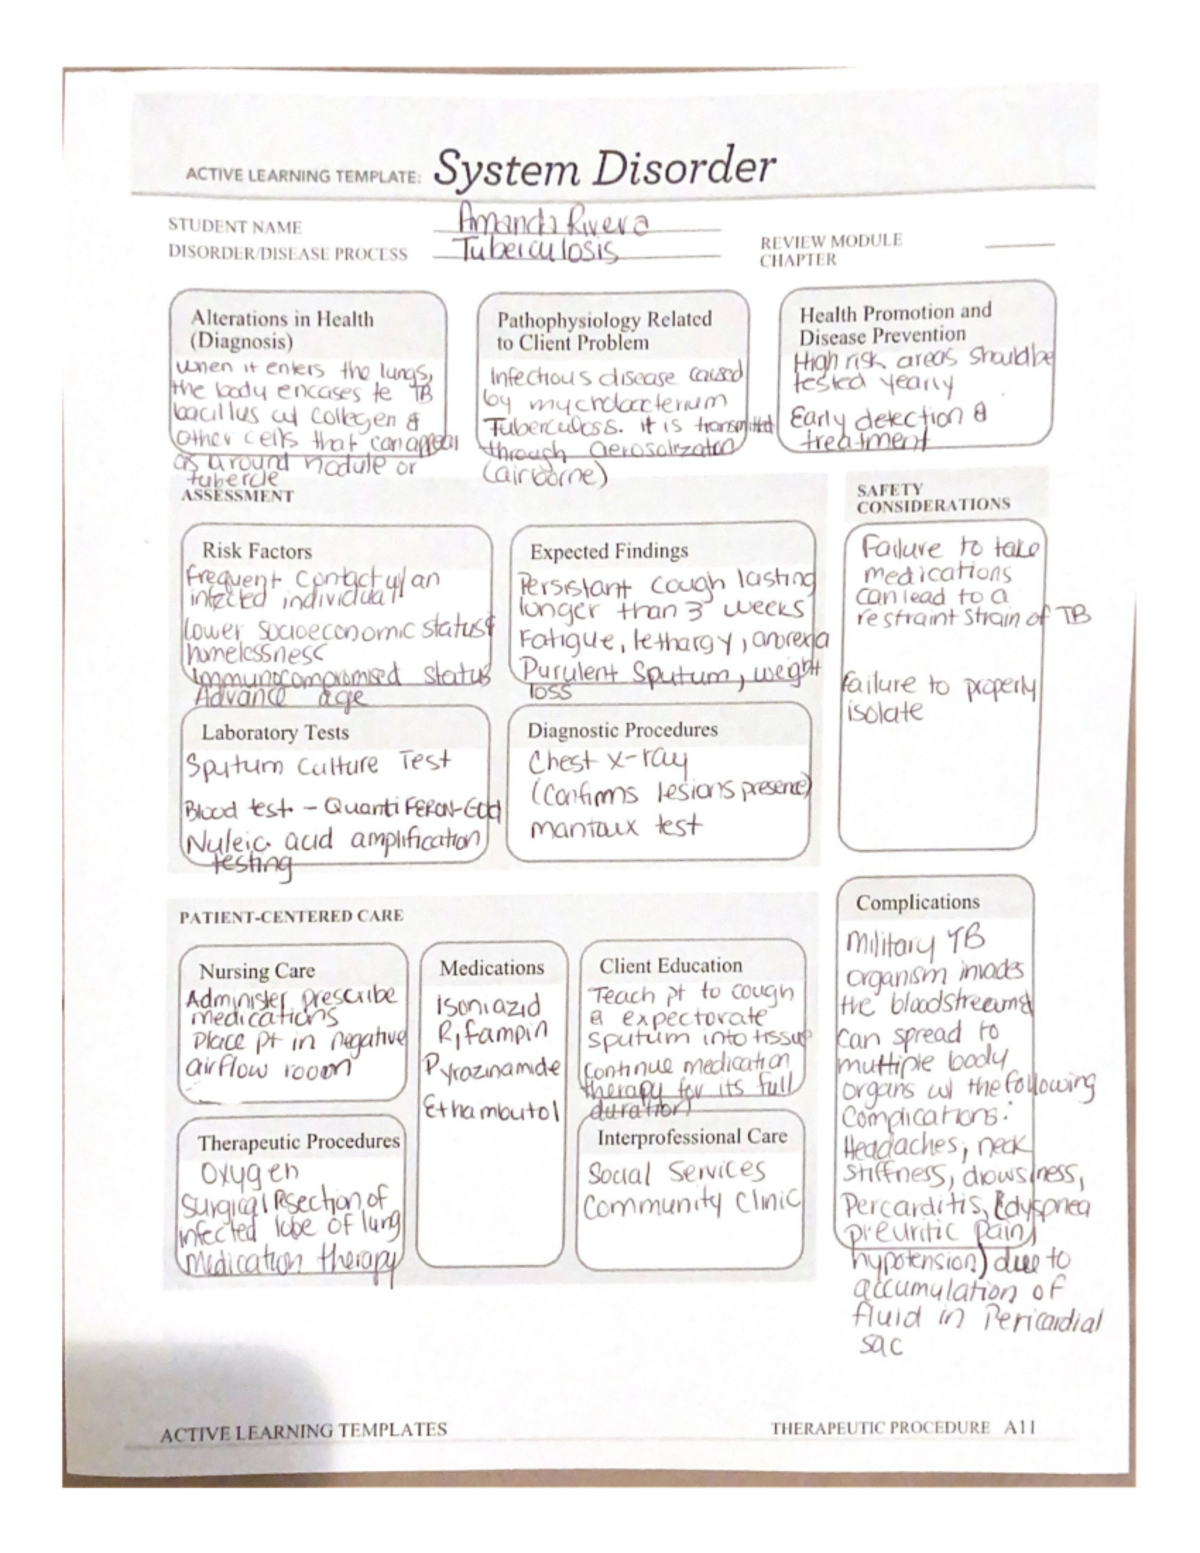 ACTIVE LEARNING TEMPLATE: System Disorder
STUDENT NAME Amanda Rivera
DISORDER/DISEASE PROCESS Tuberculosis
REVIEW MODULE
CHAPTER
Alterations in Health
(Diagnosis)
when it enters the lungs,
the body encases te TB
bacillus w/ collegen &
other cells that can appear
as a round nodule or
tubercle
Pathophysiology Related
to Client Problem
Infectious disease caused
by mycrobacterium
Tuberculosis. it is transmitted
through aerosolization
(airborne)
Health Promotion and
Disease Prevention
High risk areas should be
tested yearly
Early detection &
treatment
ASSESSMENT
Risk Factors
frequent contact w/ an
infected individual
lower socioeconomic status &
homelessness
immunocompromised status
Advance age
Expected Findings
Persistant cough lasting
longer than 3 weeks
Fatigue, lethargy, anorexia
Purulent Sputum, weight
loss
SAFETY
CONSIDERATIONS
Failure to take
medications
can lead to a
restraint strain of TB
failure to properly
isolate
Laboratory Tests
Sputum Culture Test
Blood test - QuantiFERON-Gold
Nuleic acid amplification
testing
Diagnostic Procedures
Chest x-ray
(Confirms lesions presence)
mantoux test
PATIENT-CENTERED CARE
Nursing Care
Administer prescribe
medications
Place pt in negative
airflow room
Medications
isoniazid
Rifampin
Pyrazinamide
Ethambutol
Client Education
Teach pt to cough
& expectorate
sputum into tissue
Continue medication
therapy for its full
duration
Therapeutic Procedures
Oxygen
Surgical Resection of
infected lobe of lung
medication therapy
Interprofessional Care
Social Services
Community Clinic
Complications
Military TB
organism invades
the bloodstream &
can spread to
multiple body
organs w/ the following
Complications:
Headaches, neck
stiffness, drowsiness,
Percarditis, (dyspnea
pleuritic pain,
hypotension) due to
accumulation of
fluid in Pericardial
sac
ACTIVE LEARNING TEMPLATES
THERAPEUTIC PROCEDURE A11